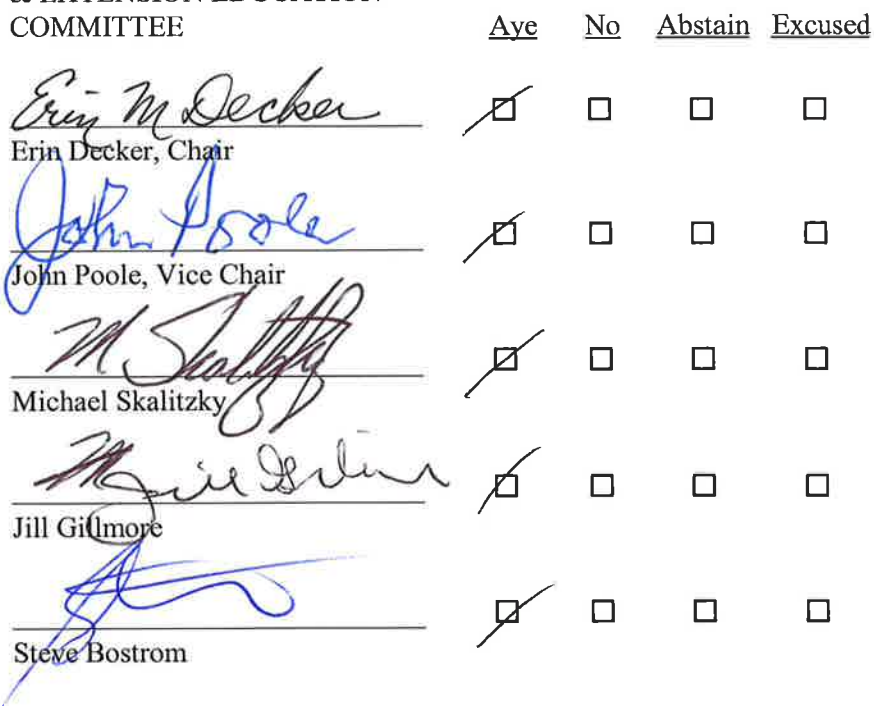 & EXTENSION EDUCATION
COMMITTEE Aye No Abstain Excused
Erin M Decker
Erin Decker, Chair
John Poole
John Poole, Vice Chair
M Skalitzky
Michael Skalitzky
Jill Gillmore
Steve Bostrom